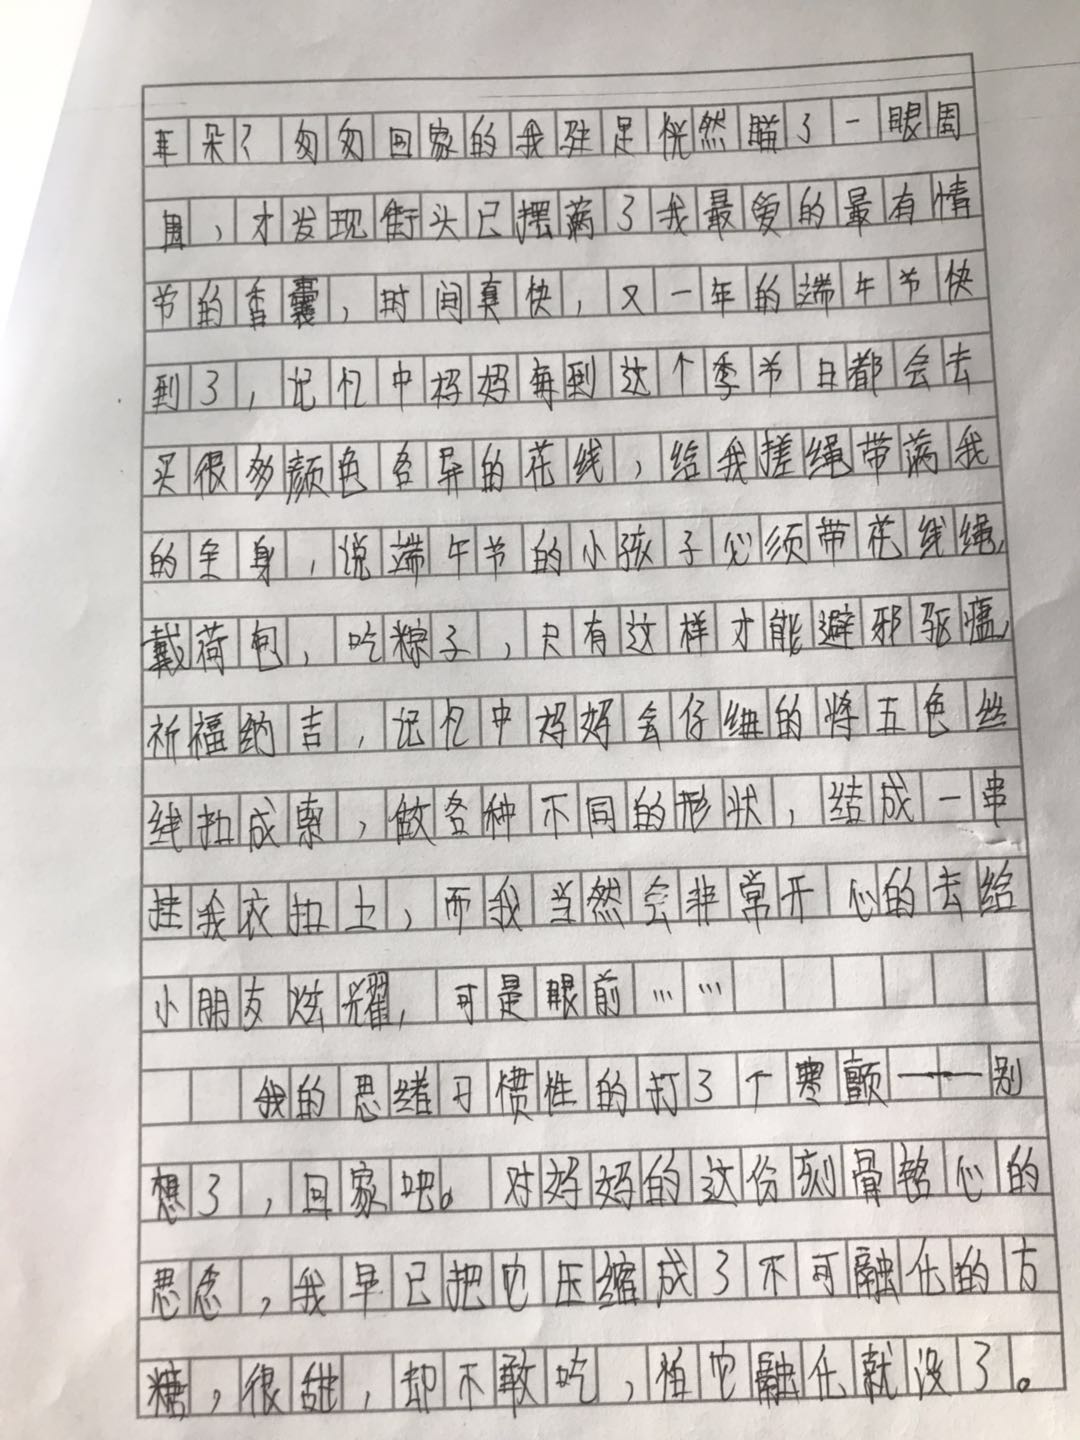 耳朵？匆匆回家的我驻足恍然瞄了一眼周
围，才发现街头已摆满了我最爱的最有情
节的香囊，时间真快，又一年的端午节快
到了，记忆中妈妈每到这个季节日都会去
买很多颜色各异的花线，给我搓绳带满我
的全身，说端午节的小孩子必须带花线绳，
戴荷包，吃粽子，只有这样才能避邪驱瘟，
祈福纳吉，记忆中妈妈会仔细的将五色丝
线扭成索，做各种不同的形状，结成一串
挂我衣扣上，而我当然会非常开心的去给
小朋友炫耀，可是眼前……
我的思绪习惯性的打了个寒颤——别
想了，回家吧。对妈妈的这份刻骨铭心的
思念，我早已把它压缩成了不可融化的方
糖，很甜，却不敢吃，怕它融化就没了。